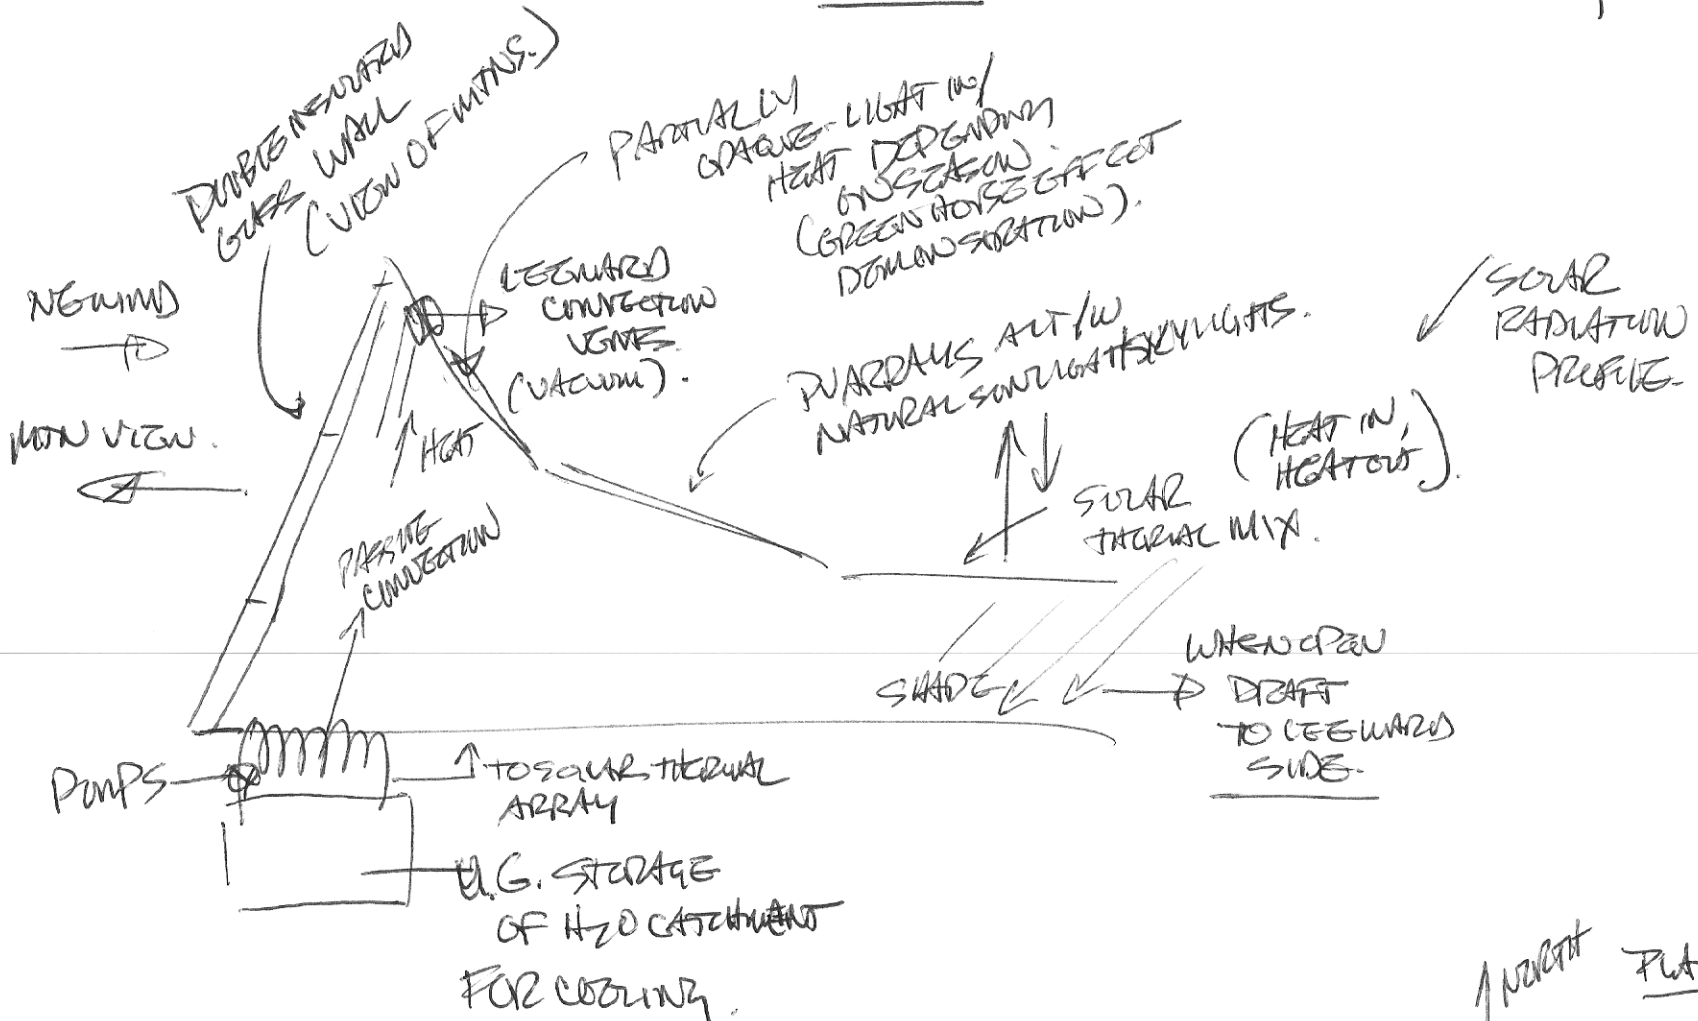 DOUBLE INSULATED
GLASS WALL
(VIEW OF MTNS.)
PARTIALLY
OPAQUE - LIGHT IN/
HEAT DEPENDING
ON SEASON.
(GREEN HOUSE EFFECT
DEMONSTRATION).
NE WIND
MTN VIEW.
LEEWARD
CONVECTION
VENTS
(VACUUM).
HEAT
PASSIVE
CONVECTION
PV ARRAYS ALT/W
NATURAL SUNLIGHT/SKYLIGHTS.
SOLAR
RADIATION
PROFILE.
(HEAT IN,
HEAT OUT).
SOLAR
THERMAL MIX.
SHADE
WHEN OPEN
DRAFT
TO LEEWARD
SIDE.
PUMPS
TO SOLAR THERMAL
ARRAY
U.G. STORAGE
OF H2O CATCHMENT
FOR COOLING.
NORTH
PLA